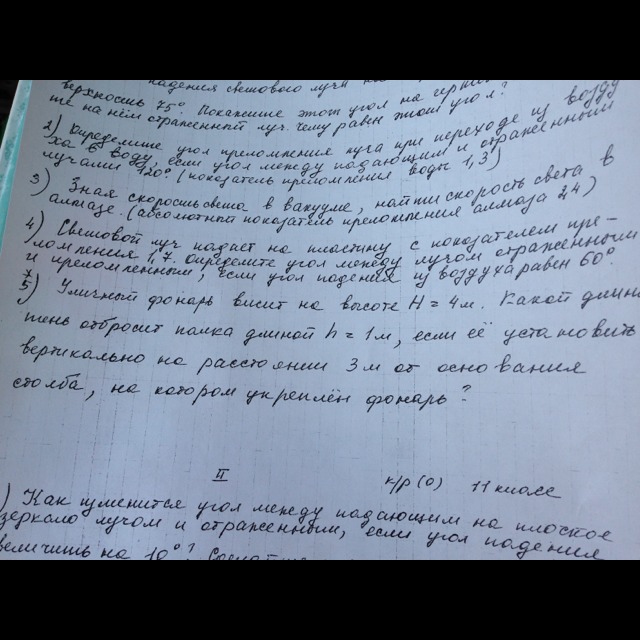 падения светового луча на
верхность 75° Покажите этот угол на
те на нём отраженный луч. Чему равен этот угол?
2) Определите угол преломления луча при переходе из возду
ха в воду, если угол между падающим и отраженными
лучами 120° (показатель преломления воды 1,3)
3) Зная скорость света в вакууме, найти скорость света в
алмазе. (абсолютный показатель преломления алмаза 2,4)
4) Световой луч падает на пластину с показателем пре-
ломления 1,7. Определите угол между лучом отраженным
и преломленным, если угол падения из воздуха равен 60°.
5) Уличный фонарь висит на высоте H = 4м. Какой длины
тень отбросит палка длиной h = 1м, если её установить
вертикально на расстоянии 3 м от основания
столба, на котором укреплён фонарь?
II к/р (0) 11 класс
) Как изменится угол между падающим на плоское
зеркало лучом и отраженным, если угол падения
величить на 10°?